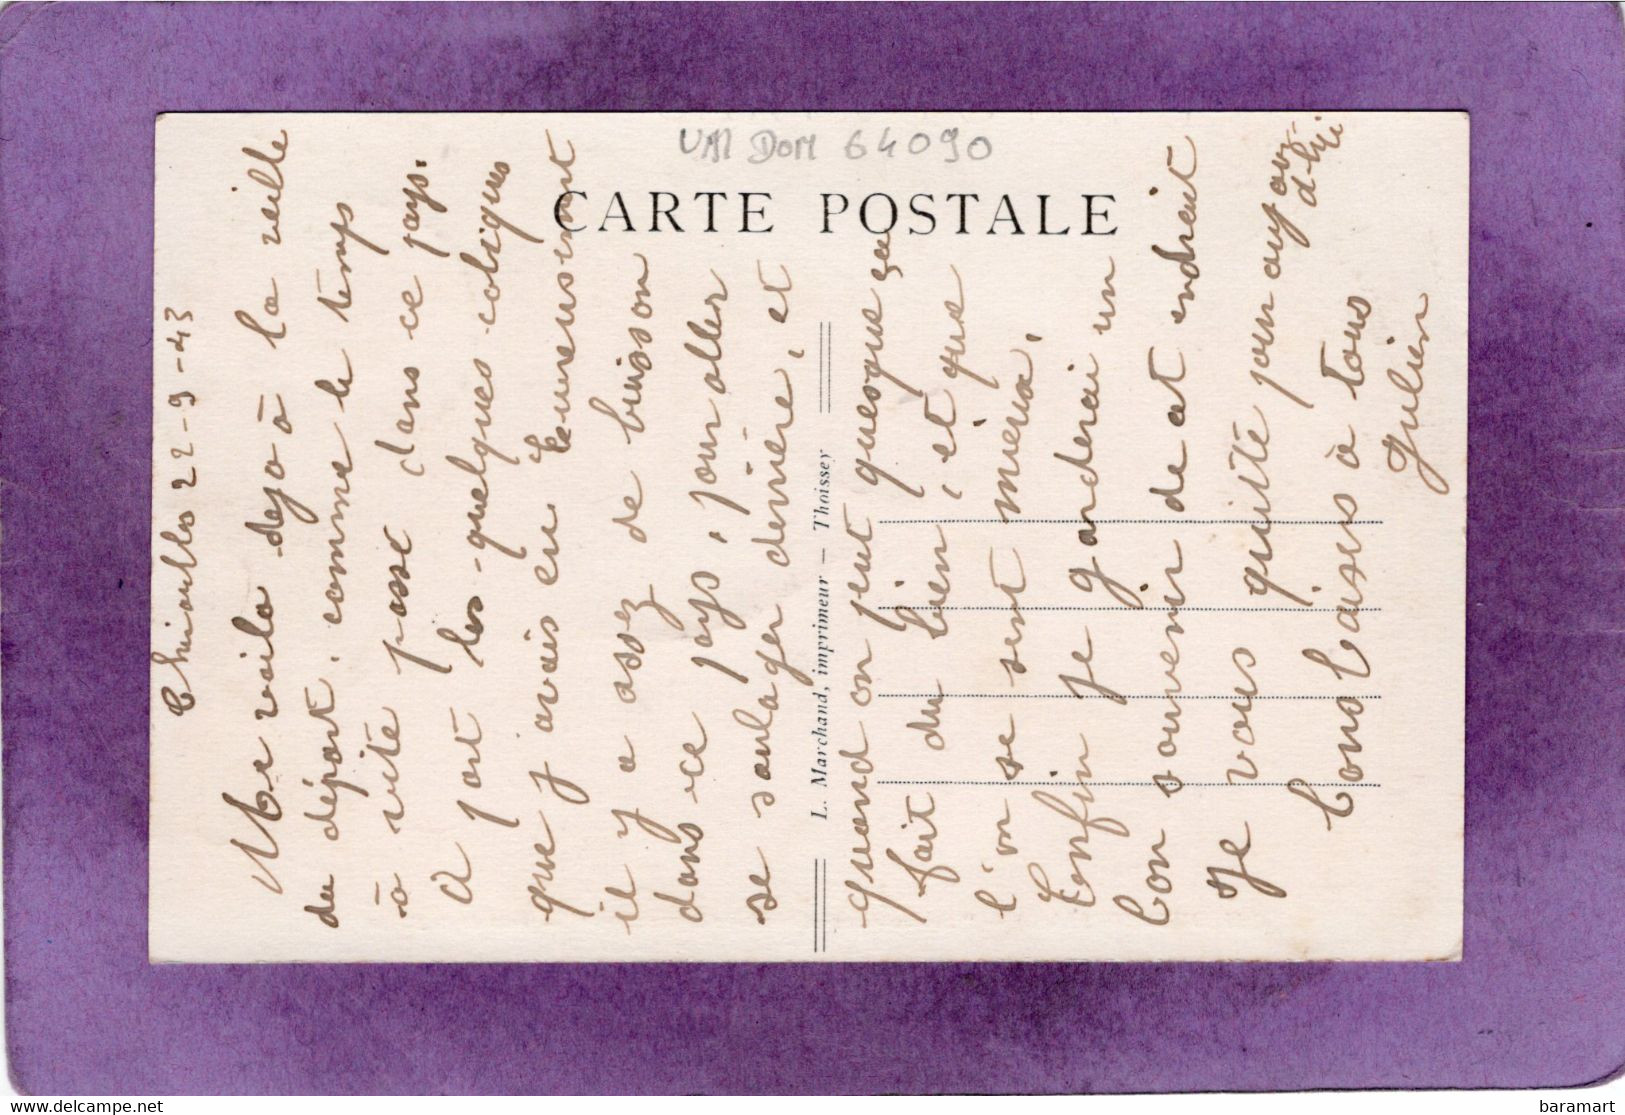 UM DOM 64090
CARTE POSTALE
L. Marchand, imprimeur - Thoissey
22-9-43
Me voila dejà à la veille
du départ. comme le temps
à vite passé dans ce pays.
A part les quelques coliques
que j'avais eu. Heureusement
il y a assez de buisson
dans ce pays, pour aller
se soulager derrière, et
quand on peut quesque ça
fait du bien, et que
l'on se sent mieux.
Enfin je garderai un
bon souvenir de cet endroit
Je vous quitte pour aujour
d'hui
bons baisers à tous
Julien
www.delcampe.net
baramart